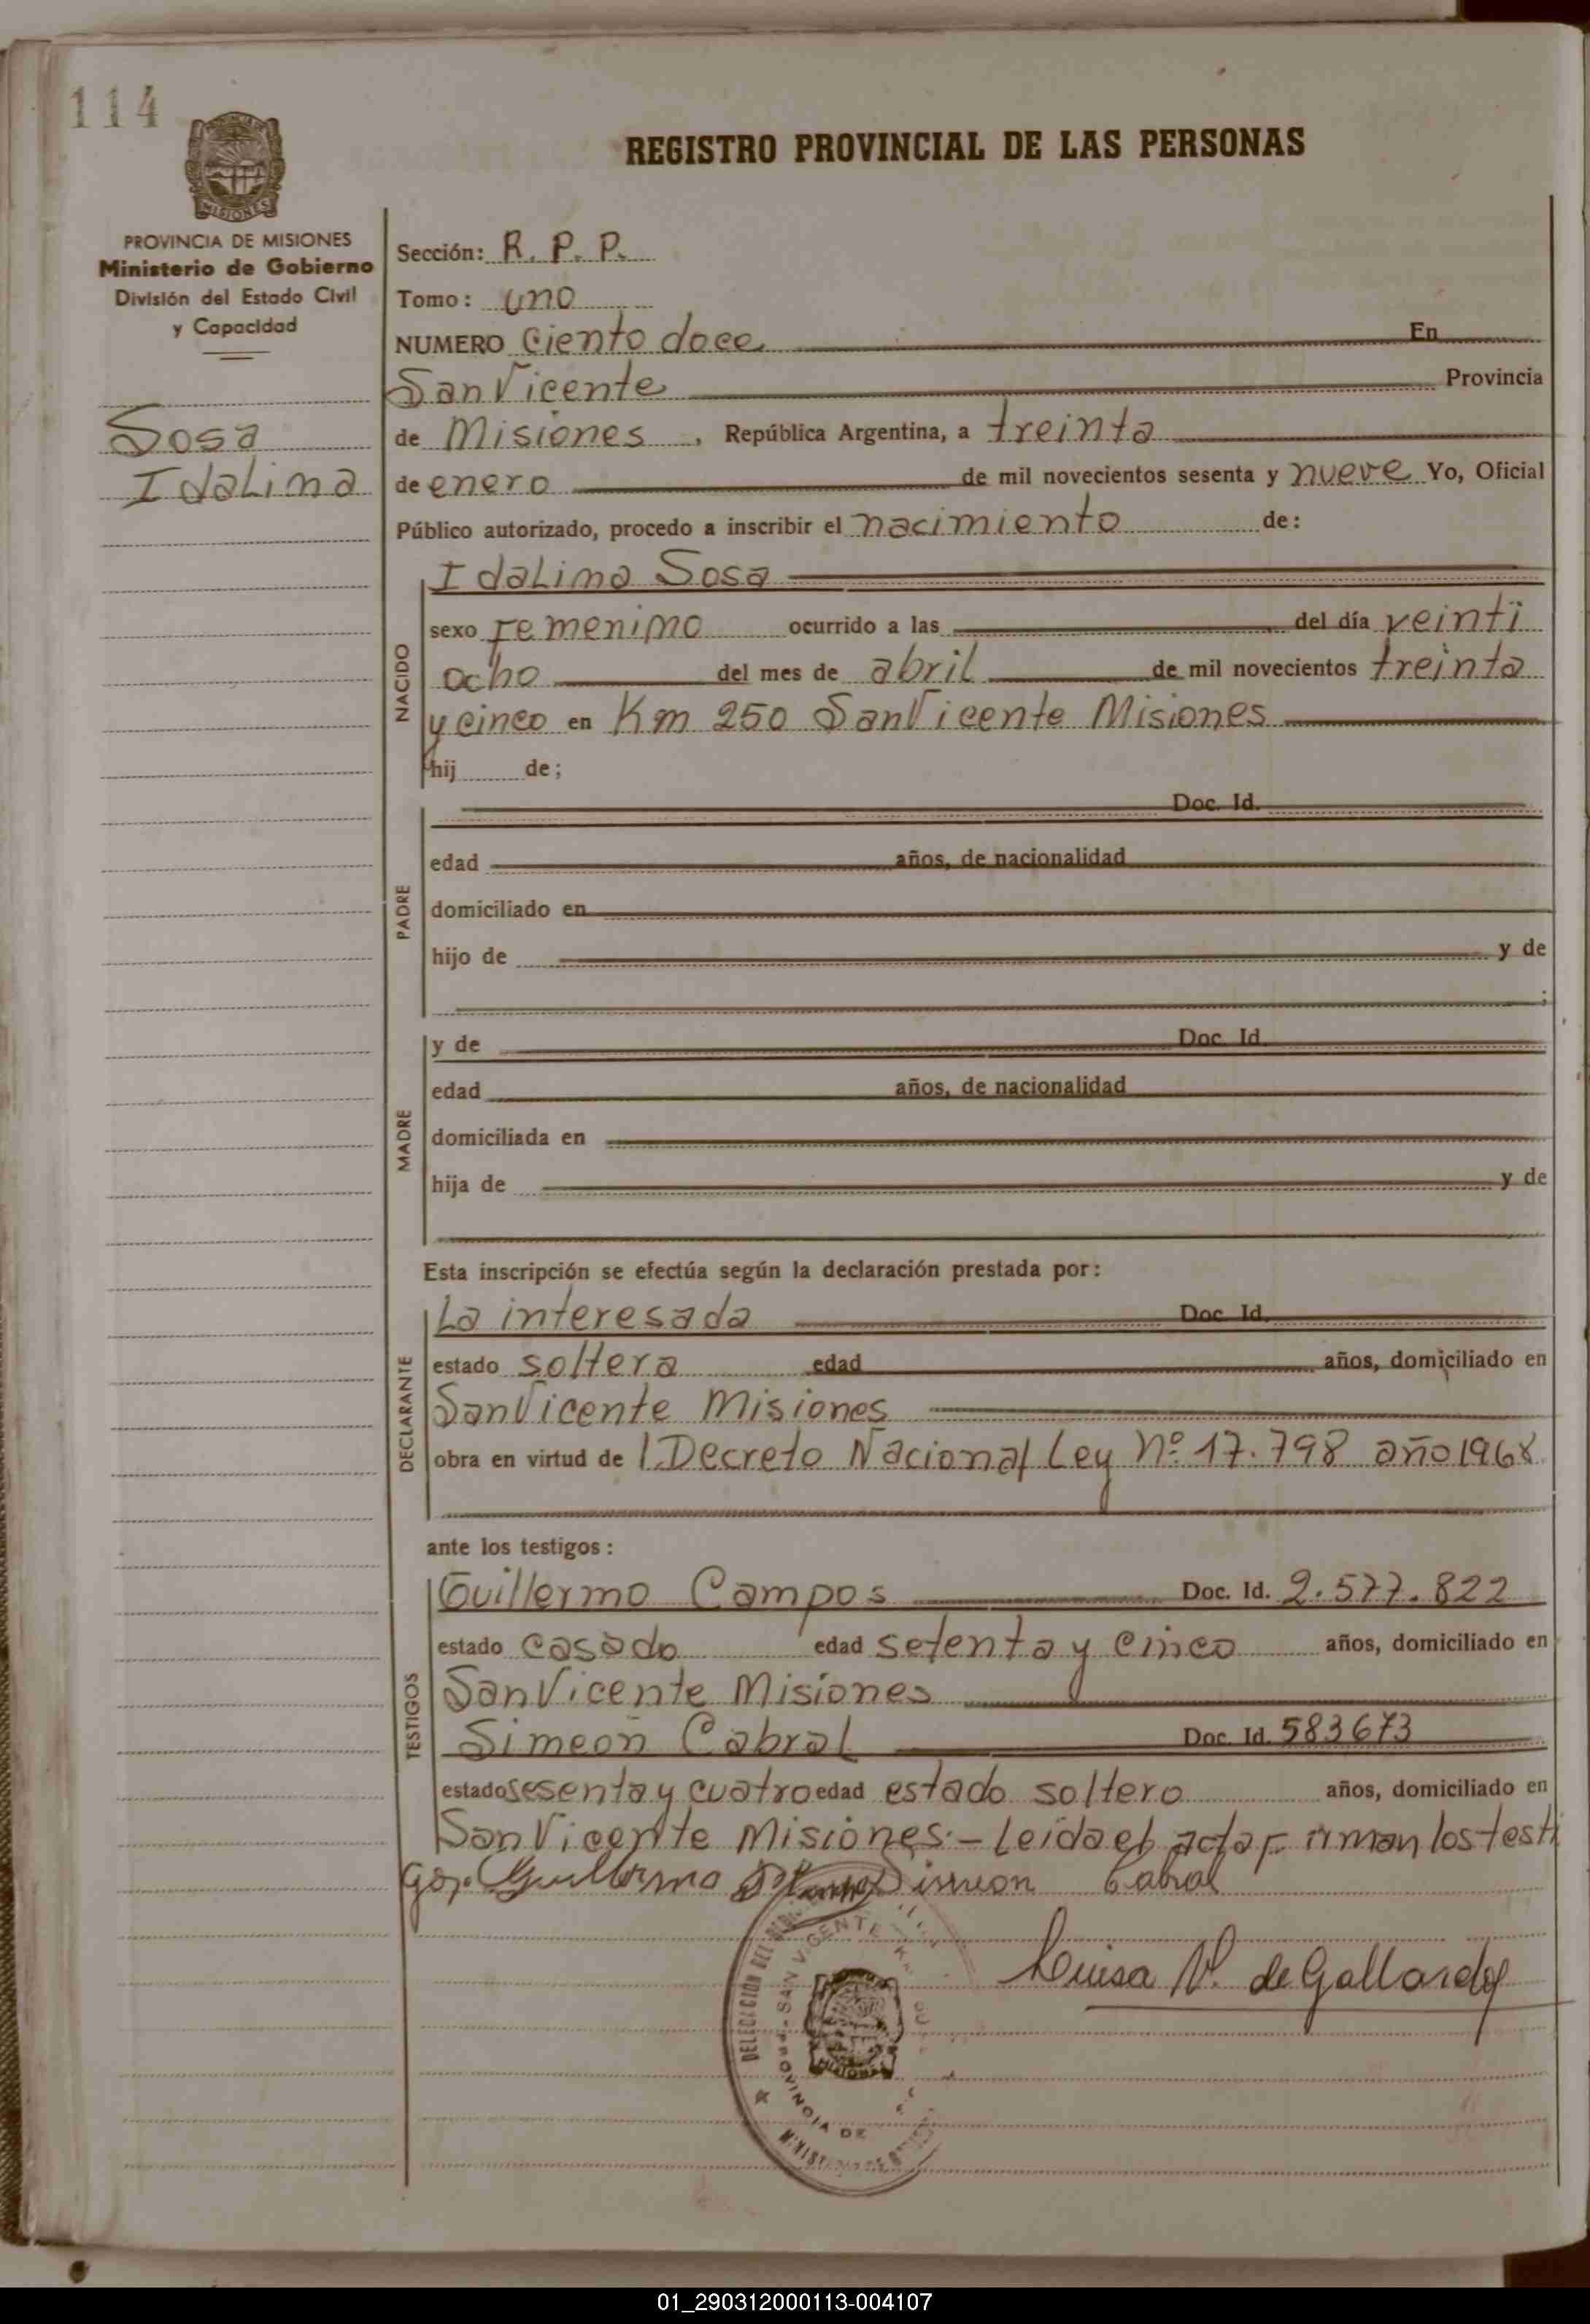 114
REGISTRO PROVINCIAL DE LAS PERSONAS
MISIONES
PROVINCIA DE MISIONES
Ministerio de Gobierno
División del Estado Civil
y Capacidad
Sosa
Idalina
Sección: R. P. P.
Tomo: uno
NUMERO Ciento doce En
San Vicente Provincia
de Misiones, República Argentina, a treinta
de enero de mil novecientos sesenta y nueve Yo, Oficial
Público autorizado, procedo a inscribir el nacimiento de:
NACIDO
Idalina Sosa
sexo femenino ocurrido a las del día veinti
ocho del mes de abril de mil novecientos treinta
y cinco en Km 250 San Vicente Misiones
hij de;
PADRE
Doc. Id.
edad años, de nacionalidad
domiciliado en
hijo de y de
;
MADRE
y de Doc. Id.
edad años, de nacionalidad
domiciliada en
hija de y de
Esta inscripción se efectúa según la declaración prestada por:
DECLARANTE
La interesada Doc. Id.
estado soltera edad años, domiciliado en
San Vicente Misiones
obra en virtud de l. Decreto Nacional Ley Nº 17.798 año 1968
ante los testigos:
TESTIGOS
Guillermo Campos Doc. Id. 2.577.822
estado casado edad setenta y cinco años, domiciliado en
San Vicente Misiones
Simeon Cabral Doc. Id. 583673
estado sesenta y cuatro edad estado soltero años, domiciliado en
San Vicente Misiones.- Leida el acta firman los testi
gos. Guillermo Simeon Cabral
Luisa V. de Gallardo
DELEGACIÓN DEL
SAN VICENTE
PROVINCIA DE
MISIONES
01_290312000113-004107